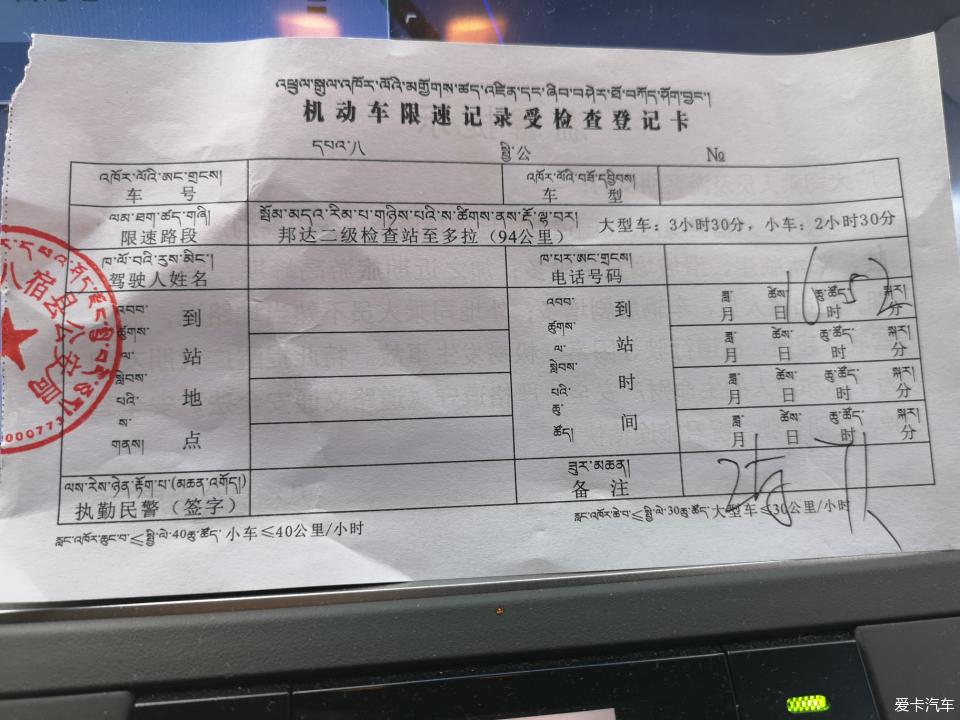 འཕྲུལ་སྒུལ་འཁོར་ལོའི་མགྱོགས་ཚད་འཛིན་དང་ཞིབ་བཤེར་ཐོ་བཀོད་ཤོག་བྱང་།
机动车限速记录受检查登记卡
དཔའ་ཤོད་ སྤྱི་公 №
འཁོར་ལོའི་ཨང་གྲངས། འཁོར་ལོའི་བཟོ་དབྱིབས།
车 号 车 型
ལམ་ཐག་ཚད་གཞི། སྤོམ་མདའ་རིམ་པ་གཉིས་པའི་ས་ཚིགས་ནས་རྡོ་ལྷ་བར། 大型车：3小时30分，小车：2小时30分
限速路段 邦达二级检查站至多拉（94公里）
ཁ་ལོ་བའི་རུས་མིང་། ཁ་པར་ཨང་གྲངས།
驾驶人姓名 电话号码
འབབ་ཚུགས་ལ་སླེབས་པའི་ས་གནས། 到站地点
འབབ་ཚུགས་ལ་སླེབས་པའི་ཆུ་ཚོད། 到站时间
ཟླ། ཚེས། ཆུ་ཚོད། སྐར།
月 日 16 时 52 分
ཟླ། ཚེས། ཆུ་ཚོད། སྐར།
月 日 时 分
ཟླ། ཚེས། ཆུ་ཚོད། སྐར།
月 日 时 分
ཟླ། ཚེས། ཆུ་ཚོད། སྐར།
月 日 时 分
ལས་རེས་ཉེན་རྟོག་པ་(མཚན་འགོད།) ཟུར་མཆན།
执勤民警（签字） 备 注
རླང་འཁོར་ཆུང་བ་≤སྤྱི་ལེ་40ཆུ་ཚོད་ 小车≤40公里/小时
རླང་འཁོར་ཆེ་བ་≤སྤྱི་ལེ་30ཆུ་ཚོད་ 大型车≤30公里/小时
八宿县公安局
000077
爱卡汽车